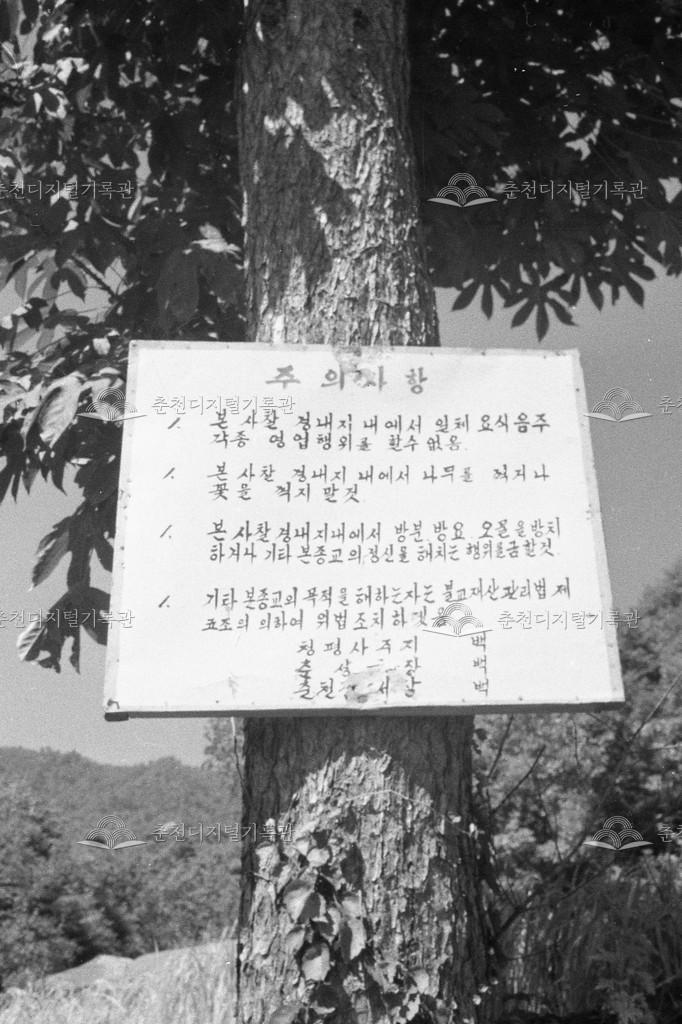 주의사항
1. 본 사찰 경내지 내에서 일체 요식음주
각종 영업행위를 할수 없음.
1. 본 사찰 경내지 내에서 나무를 꺽거나
꽃을 꺽지 말것.
1. 본 사찰 경내지내에서 방분, 방요, 오물을 방치
하거나 기타 본종교의 정신을 해치는 행위를 금할것.
1. 기타 본종교의 목적을 해하는자는 불교재산관리법 제
조의 의하여 위법 조치하겠음
청평사 주지 백
장 백
춘천 서장 백
춘천디지털기록관
춘천디지털기록관
춘천디지털기록관
춘천디지털기록관
춘천디지털기록관
춘천디지털기록관